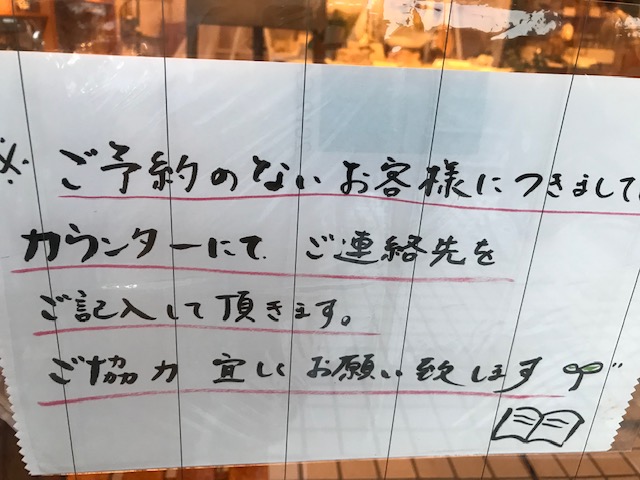 ※ ご予約のないお客様につきまして
カウンターにて ご連絡先を
ご記入して頂きます。
ご協力 宜しくお願い致します